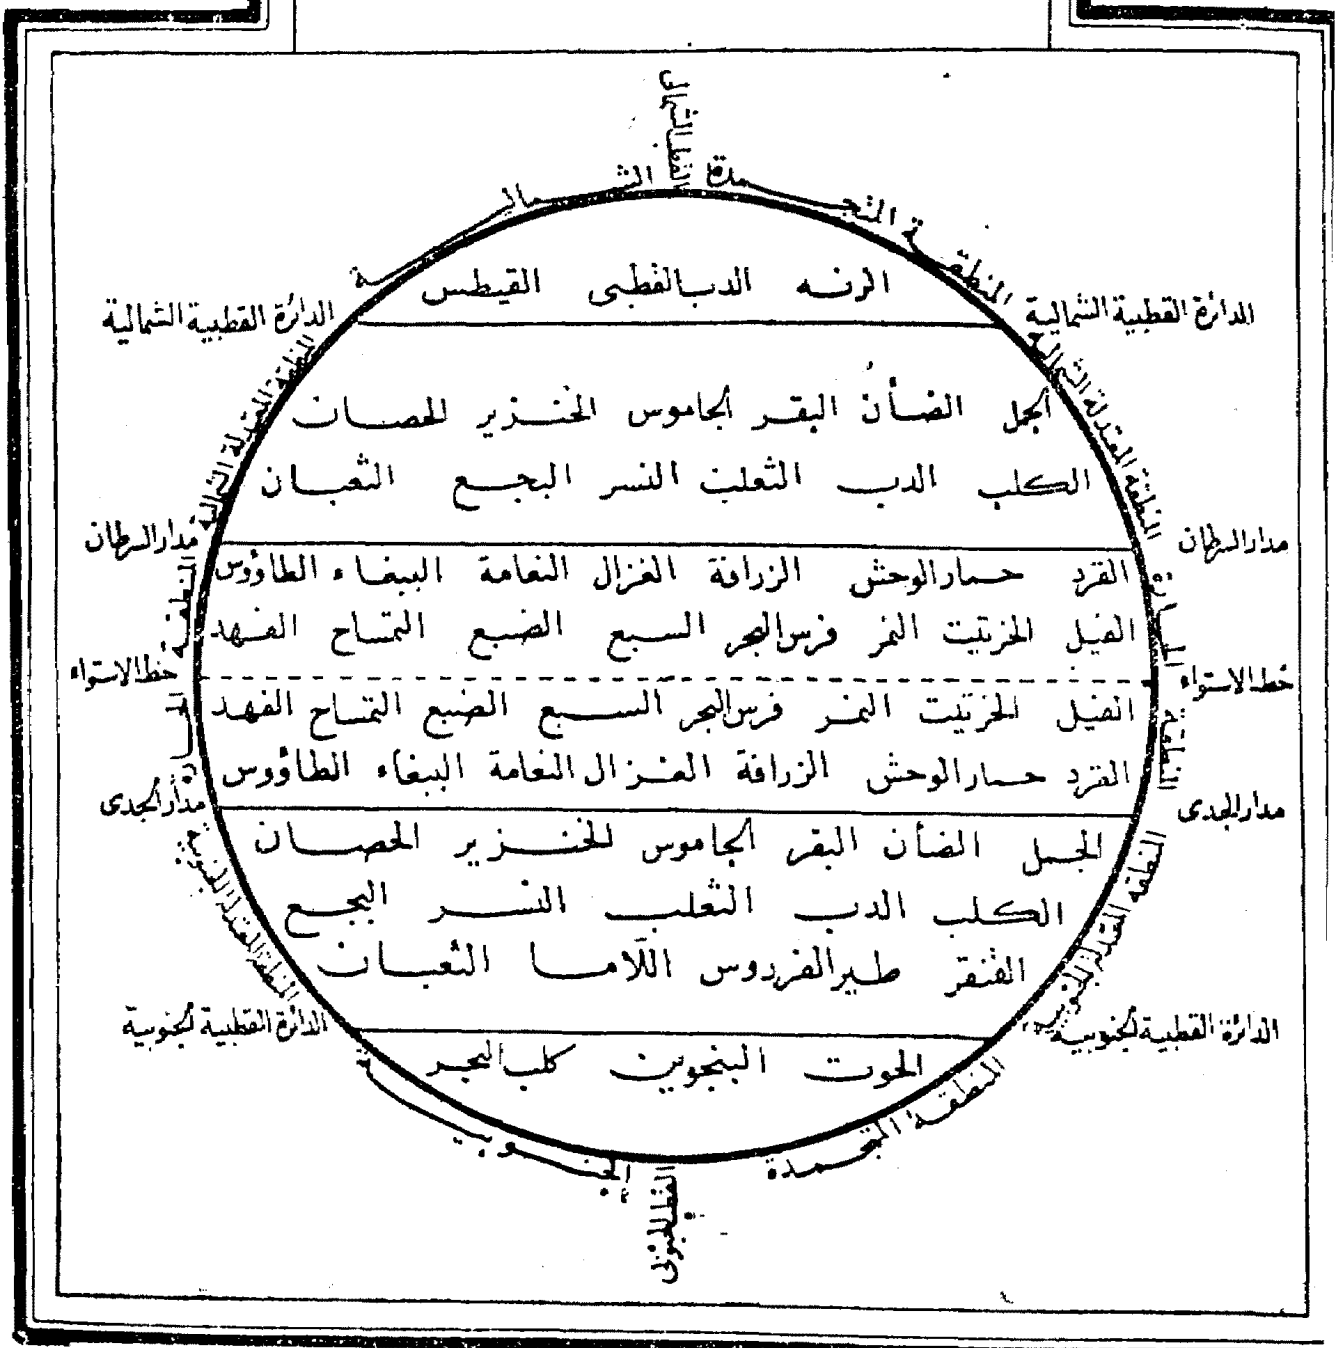 القطب الشمالى
المنطقة المتجمدة الشمالية
الرنه الدب القطبى القيطس
الدائرة القطبية الشمالية
الدائرة القطبية الشمالية
المنطقة المعتدلة الشمالية
المنطقة المعتدلة الشمالية
الجمل الضأن البقر الجاموس الخنزير الحصان
الكلب الدب الثعلب النسر البجع الثعبان
مدار السرطان
مدار السرطان
القرد حمار الوحش الزرافة الغزال النعامة الببغاء الطاؤوس
الفيل الخرتيت النمر فرس البحر السبع الضبع التمساح الفهد
المنطقة الحارة
المنطقة الحارة
خط الاستواء
خط الاستواء
الفيل الخرتيت النمر فرس البحر السبع الضبع التمساح الفهد
القرد حمار الوحش الزرافة الغزال النعامة الببغاء الطاؤوس
مدار الجدى
مدار الجدى
الجمل الضأن البقر الجاموس الخنزير الحصان
الكلب الدب الثعلب النسر البجع
القنقر طير الفردوس اللاما الثعبان
المنطقة المعتدلة الجنوبية
المنطقة المعتدلة الجنوبية
الدائرة القطبية الجنوبية
الدائرة القطبية الجنوبية
الحوت البنجوين كلب البحر
المنطقة المتجمدة الجنوبية
القطب الجنوبى